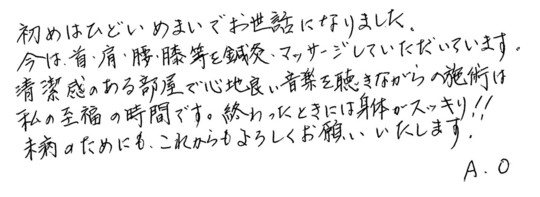 初めはひどいめまいでお世話になりました。
今は、首・肩・腰・膝等を鍼灸・マッサージしていただいています。
清潔感のある部屋で心地良い音楽を聴きながらの施術は
私の至福の時間です。終わったときには身体がスッキリ!!
未病のためにも、これからもよろしくお願いいたします!
A.O